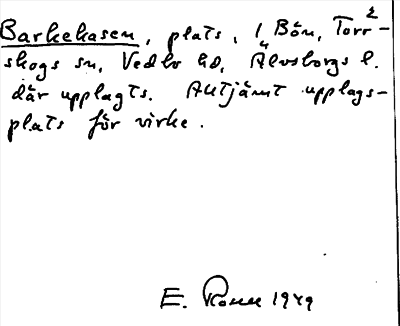 Barkehasen, plats, i Bön, Torr-
skogs sn, Vedbo hd, Älvsborgs l.
där upplagts. Alltjämt upplags-
plats för virke.
E. 1949